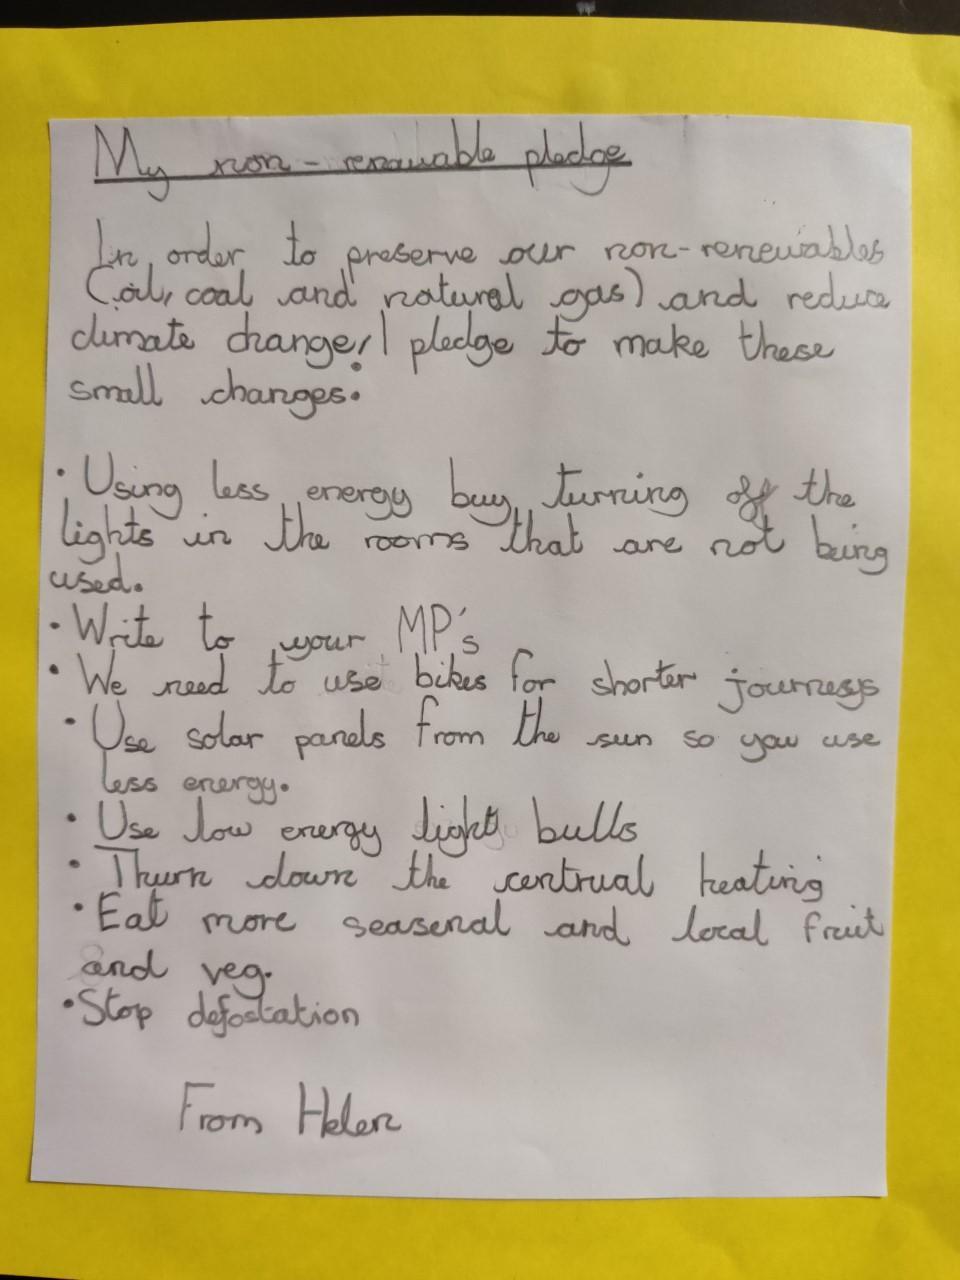 My non-renewable pledge
In order to preserve our non-renewables
(oil, coal and natural gas) and reduce
climate change, I pledge to make these
small changes:
• Using less energy buy turning off the
lights in the rooms that are not being
used.
• Write to your MP's
• We need to use bikes for shorter journeys
• Use solar panels from the sun so you use
less energy.
• Use low energy light bulls
• Thurn down the centrual heating
• Eat more seasenal and local fruit
and veg.
• Stop defostation
From Helen